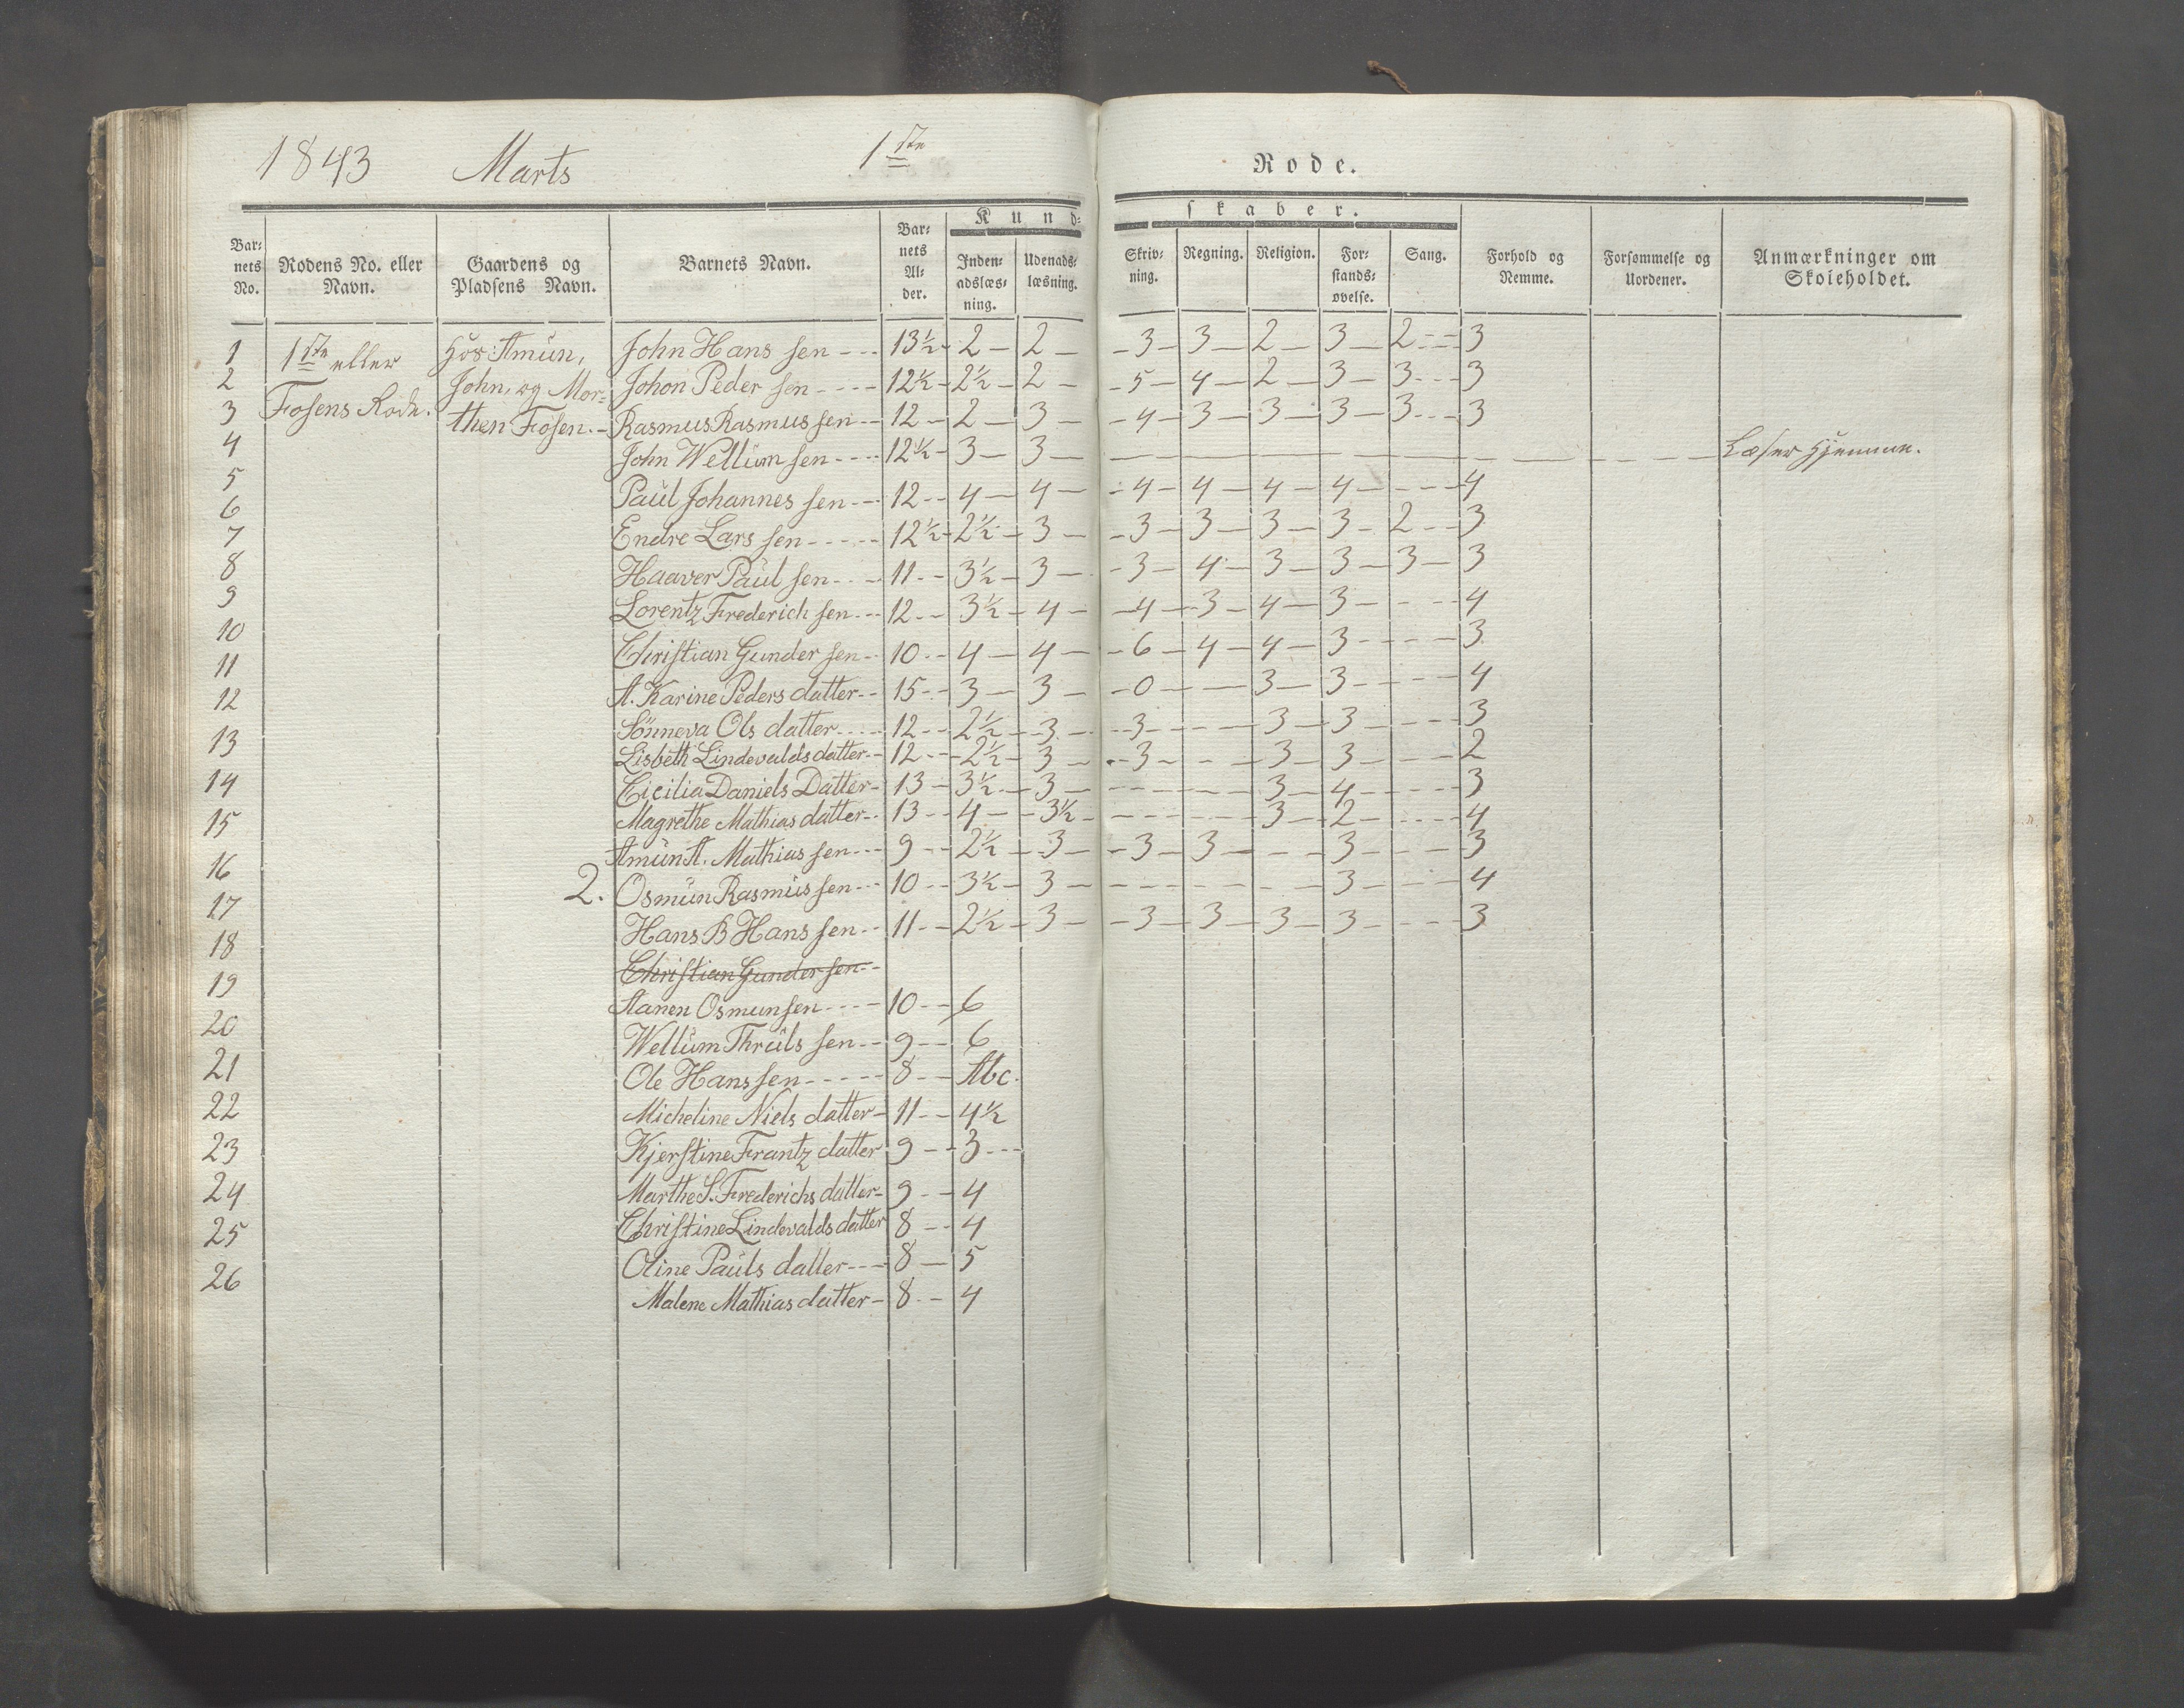 1843 Marts 1ste Rode.
Kund= skaber.
Bar= nets No. | Rodens No. eller Navn. | Gaardens og Pladsens Navn. | Barnets Navn. | Bar= nets Al= der. | Inden= adslæs= ning. | Udenads= læsning. | Skriv= ning. | Regning. | Religion. | For= stands= øvelse. | Sang. | Forhold og Nemme. | Forsømmelse og Uordener. | Anmærkninger om Skoleholdet.
1 1ste eller hos Amün, John Hans sen --- 13½ - 2 - 2 - - 3 - 3 - 2 - 3 - 2 --- 3
2 Fosens Rode. John, og Mor= Johon Peder sen ---- 12½ - 2½ - 2 - - 5 - 4 - 2 - 3 - 3 --- 3
3 then Fosen. - Rasmus Rasmus sen -- 12 - 2 - 3 - - 4 - 3 - 3 - 3 - 3 --- 3
4 John Wellüm sen ---- 12½ - 3 - 3 - Læser Hjemme.
5 Paül Johannes sen --- 12 -- 4 - 4 - - 4 - 4 - 4 - 4 - --- 4
6 Endre Lars sen ----- 12½ - 2½ - 3 - - 3 - 3 - 3 - 3 - 2 --- 3
7 Haaver Paül sen --- 11 -- 3½ - 3 - - 3 - 4 - 3 - 3 - 3 - 3
8 Lorentz Frederich sen --- 12 -- 3½ - 4 - - 4 - 3 - 4 - 3 - --- 4
9 Christian Gunder sen -- 10 -- 4 - 4 - - 6 - 4 - 4 - 3 - --- 3
10 A. Karine Peders datter -- 15 -- 3 - 3 - - 0 - - 3 - 3 - --- 4
11 Sönneva Ols datter ---- 12 -- 2½ - 3 - - 3 - -- 3 - 3 - --- 3
12 Lisbeth Lindevalds datter -- 12 -- 2½ - 3 - - 3 - -- 3 - 3 - --- 2
13 Cicilia Daniels Datter - 13 - 3½ - 3 - ----- 3 - 4 - --- 3
14 Magrethe Mathias datter -- 13 -- 4 - - 3½ - ----- 3 - 2 - --- 4
15 Amün A. Mathias sen --- 9 -- 2½ - 3 - - 3 - 3 - -- 3 - --- 3
16 2. Osmün Rasmüs sen --- 10 -- 3½ - 3 - ------- 3 - --- 4
17 Hans B Hans sen -- 11 -- 2½ - 3 - - 3 - 3 - 3 - 3 - --- 3
18 Christian Gunder sen --
19 Aanen Osmun sen ---- 10 -- 6
20 Wellüm Thrüls sen -- 9 -- 6
21 Ole Hans sen ----- 8 -- Abc.
22 Micheline Niels datter - 11 -- 4½
23 Kjerstine Frantz datter 9 -- 3 ---
24 Marthe S. Frederichs datter - 9 -- 4
25 Christine Lindevalds datter 8 -- 4
26 Oline Paüls datter --- 8 - 5
Malene Mathias datter - 8 -- 4